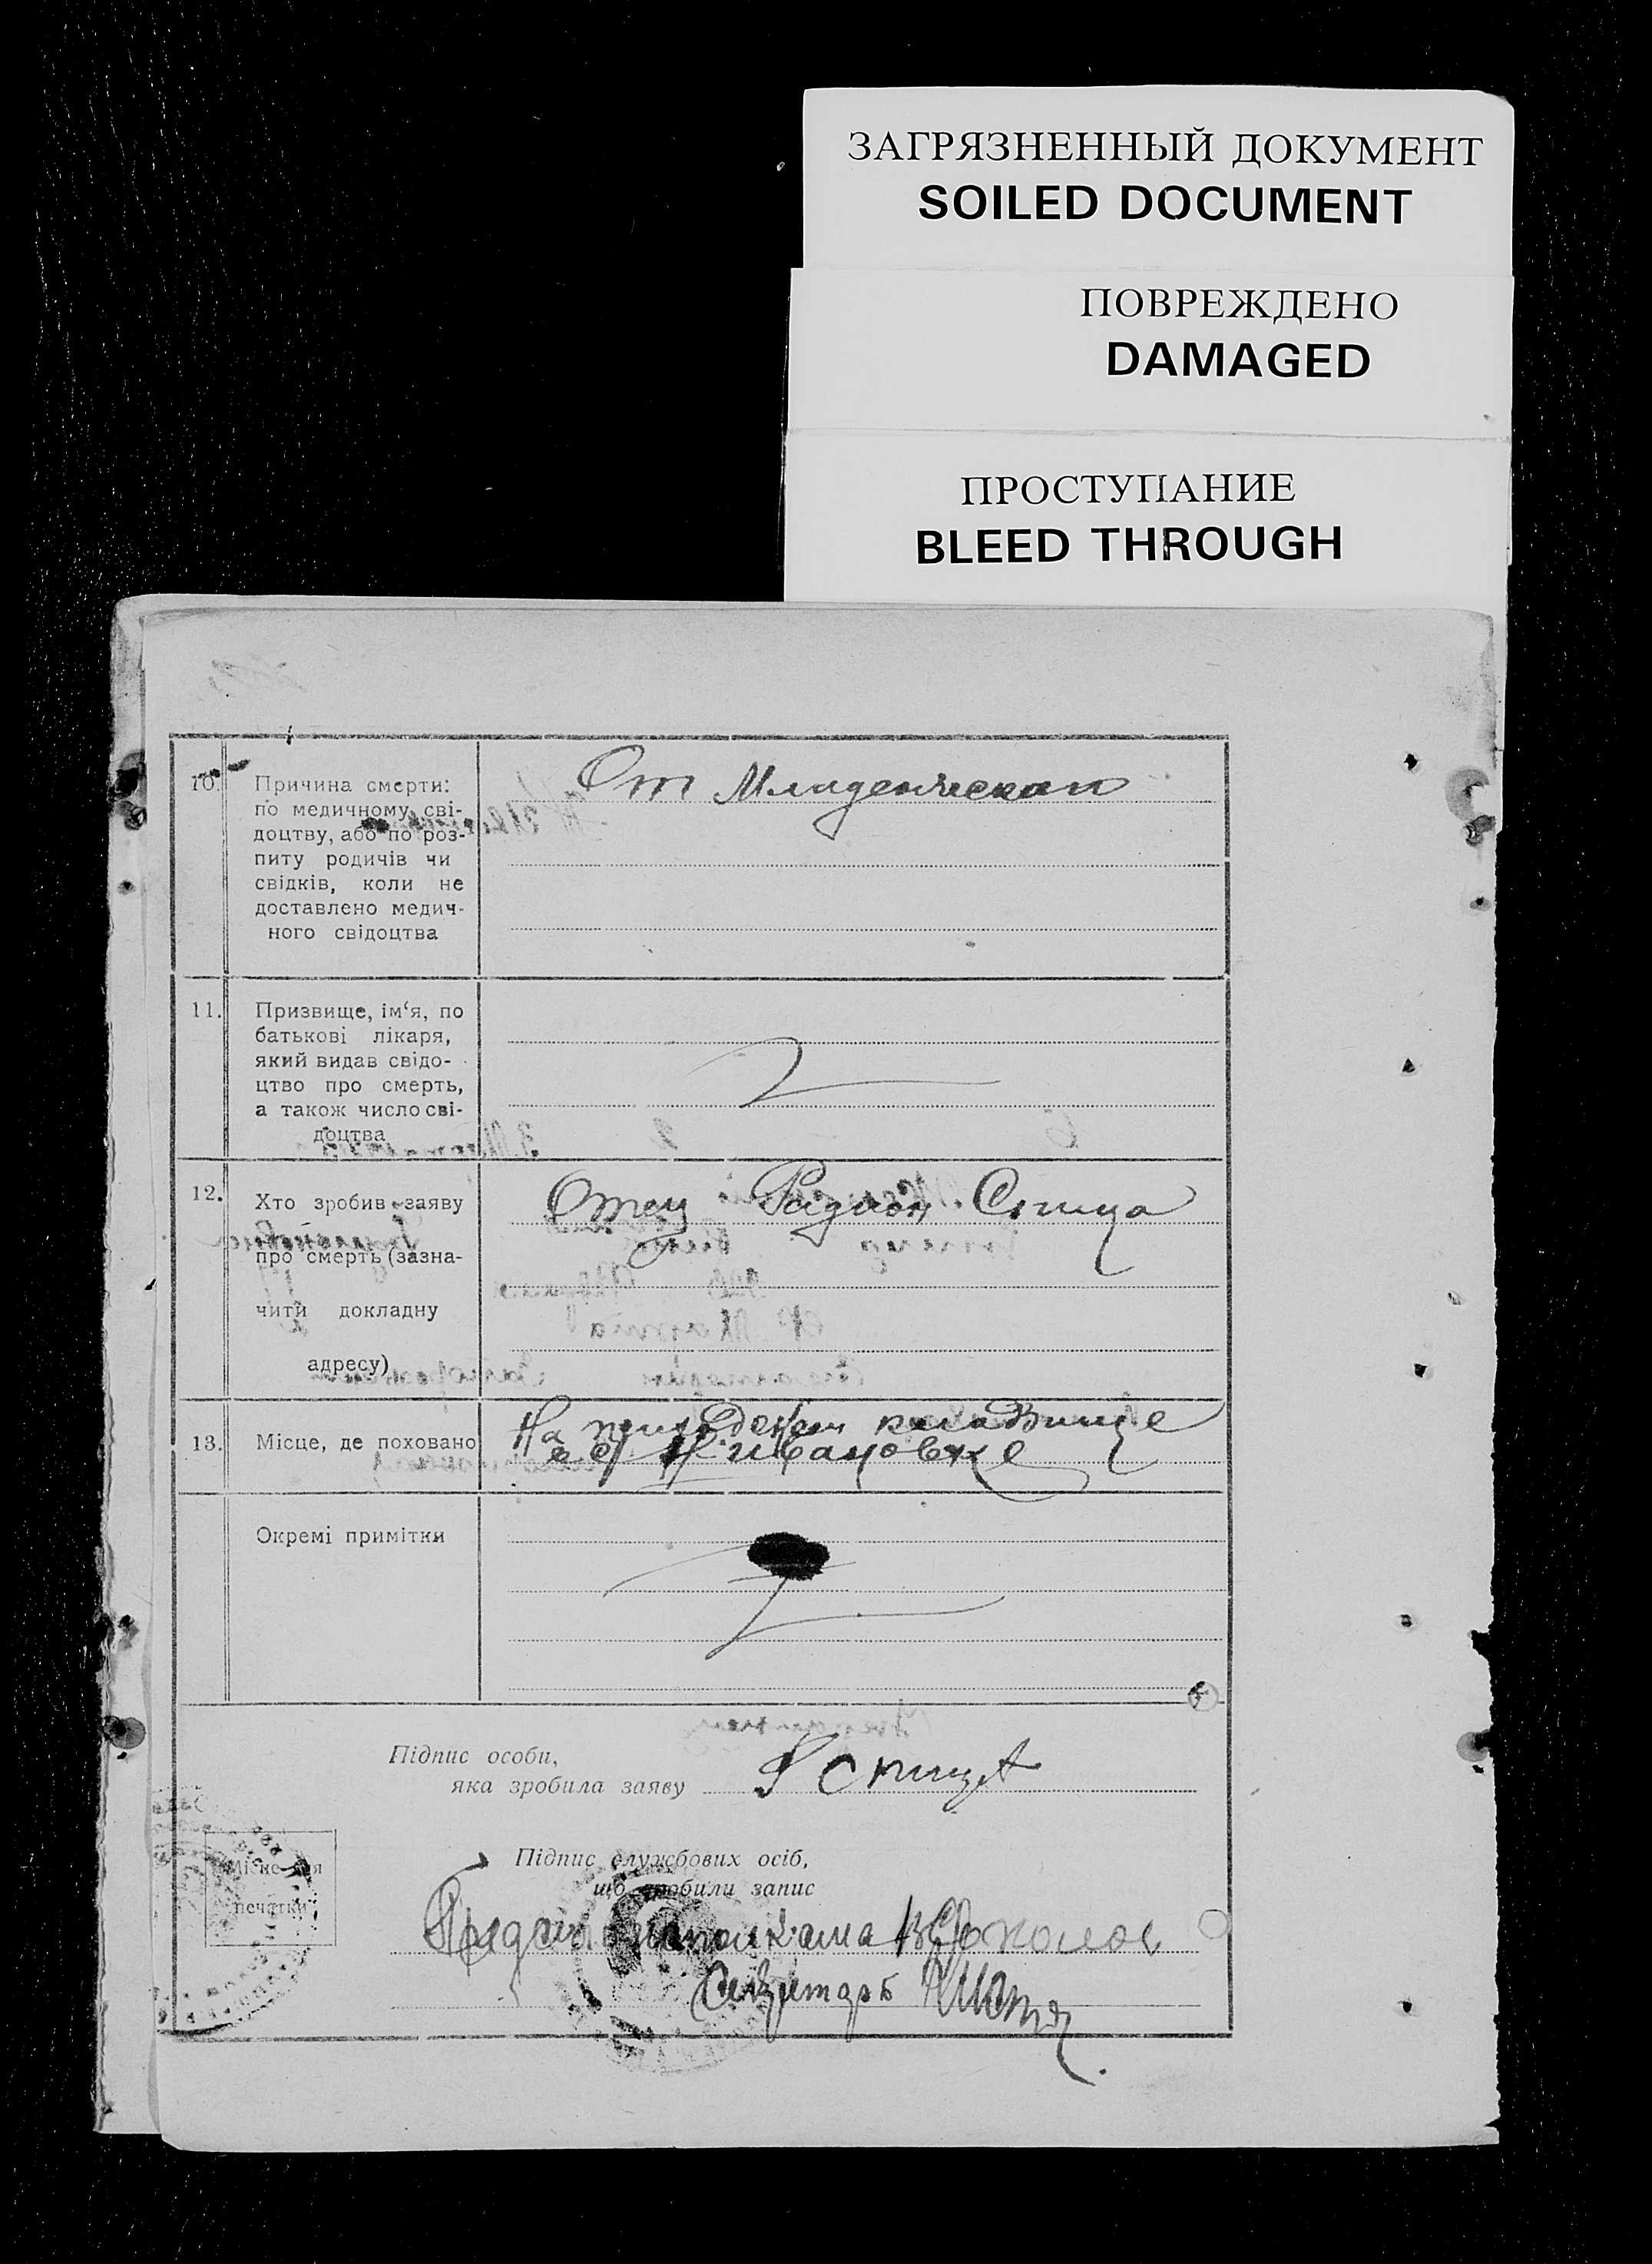 ЗАГРЯЗНЕННЫЙ ДОКУМЕНТ
SOILED DOCUMENT
ПОВРЕЖДЕНО
DAMAGED
ПРОСТУПАНИЕ
BLEED THROUGH
10. Причина смерти:
по медичному сві-
доцтву, або по роз-
питу родичів чи
свідків, коли не
доставлено медич-
ного свідоцтва
От Младенческой
11. Призвище, ім‘я, по
батькові лікаря,
який видав свідо-
цтво про смерть,
а також число сві-
доцтва
12. Хто зробив заяву
про смерть (зазна-
чити докладну
адресу)
Отец Радион Спица
13. Місце, де поховано
На кладвище
в с Н. ивановке
Окремі примітки
Підпис особи,
яка зробила заяву
Р Спица
Місце для
печатки
Підпис службових осіб,
що зробили запис
Секретарь